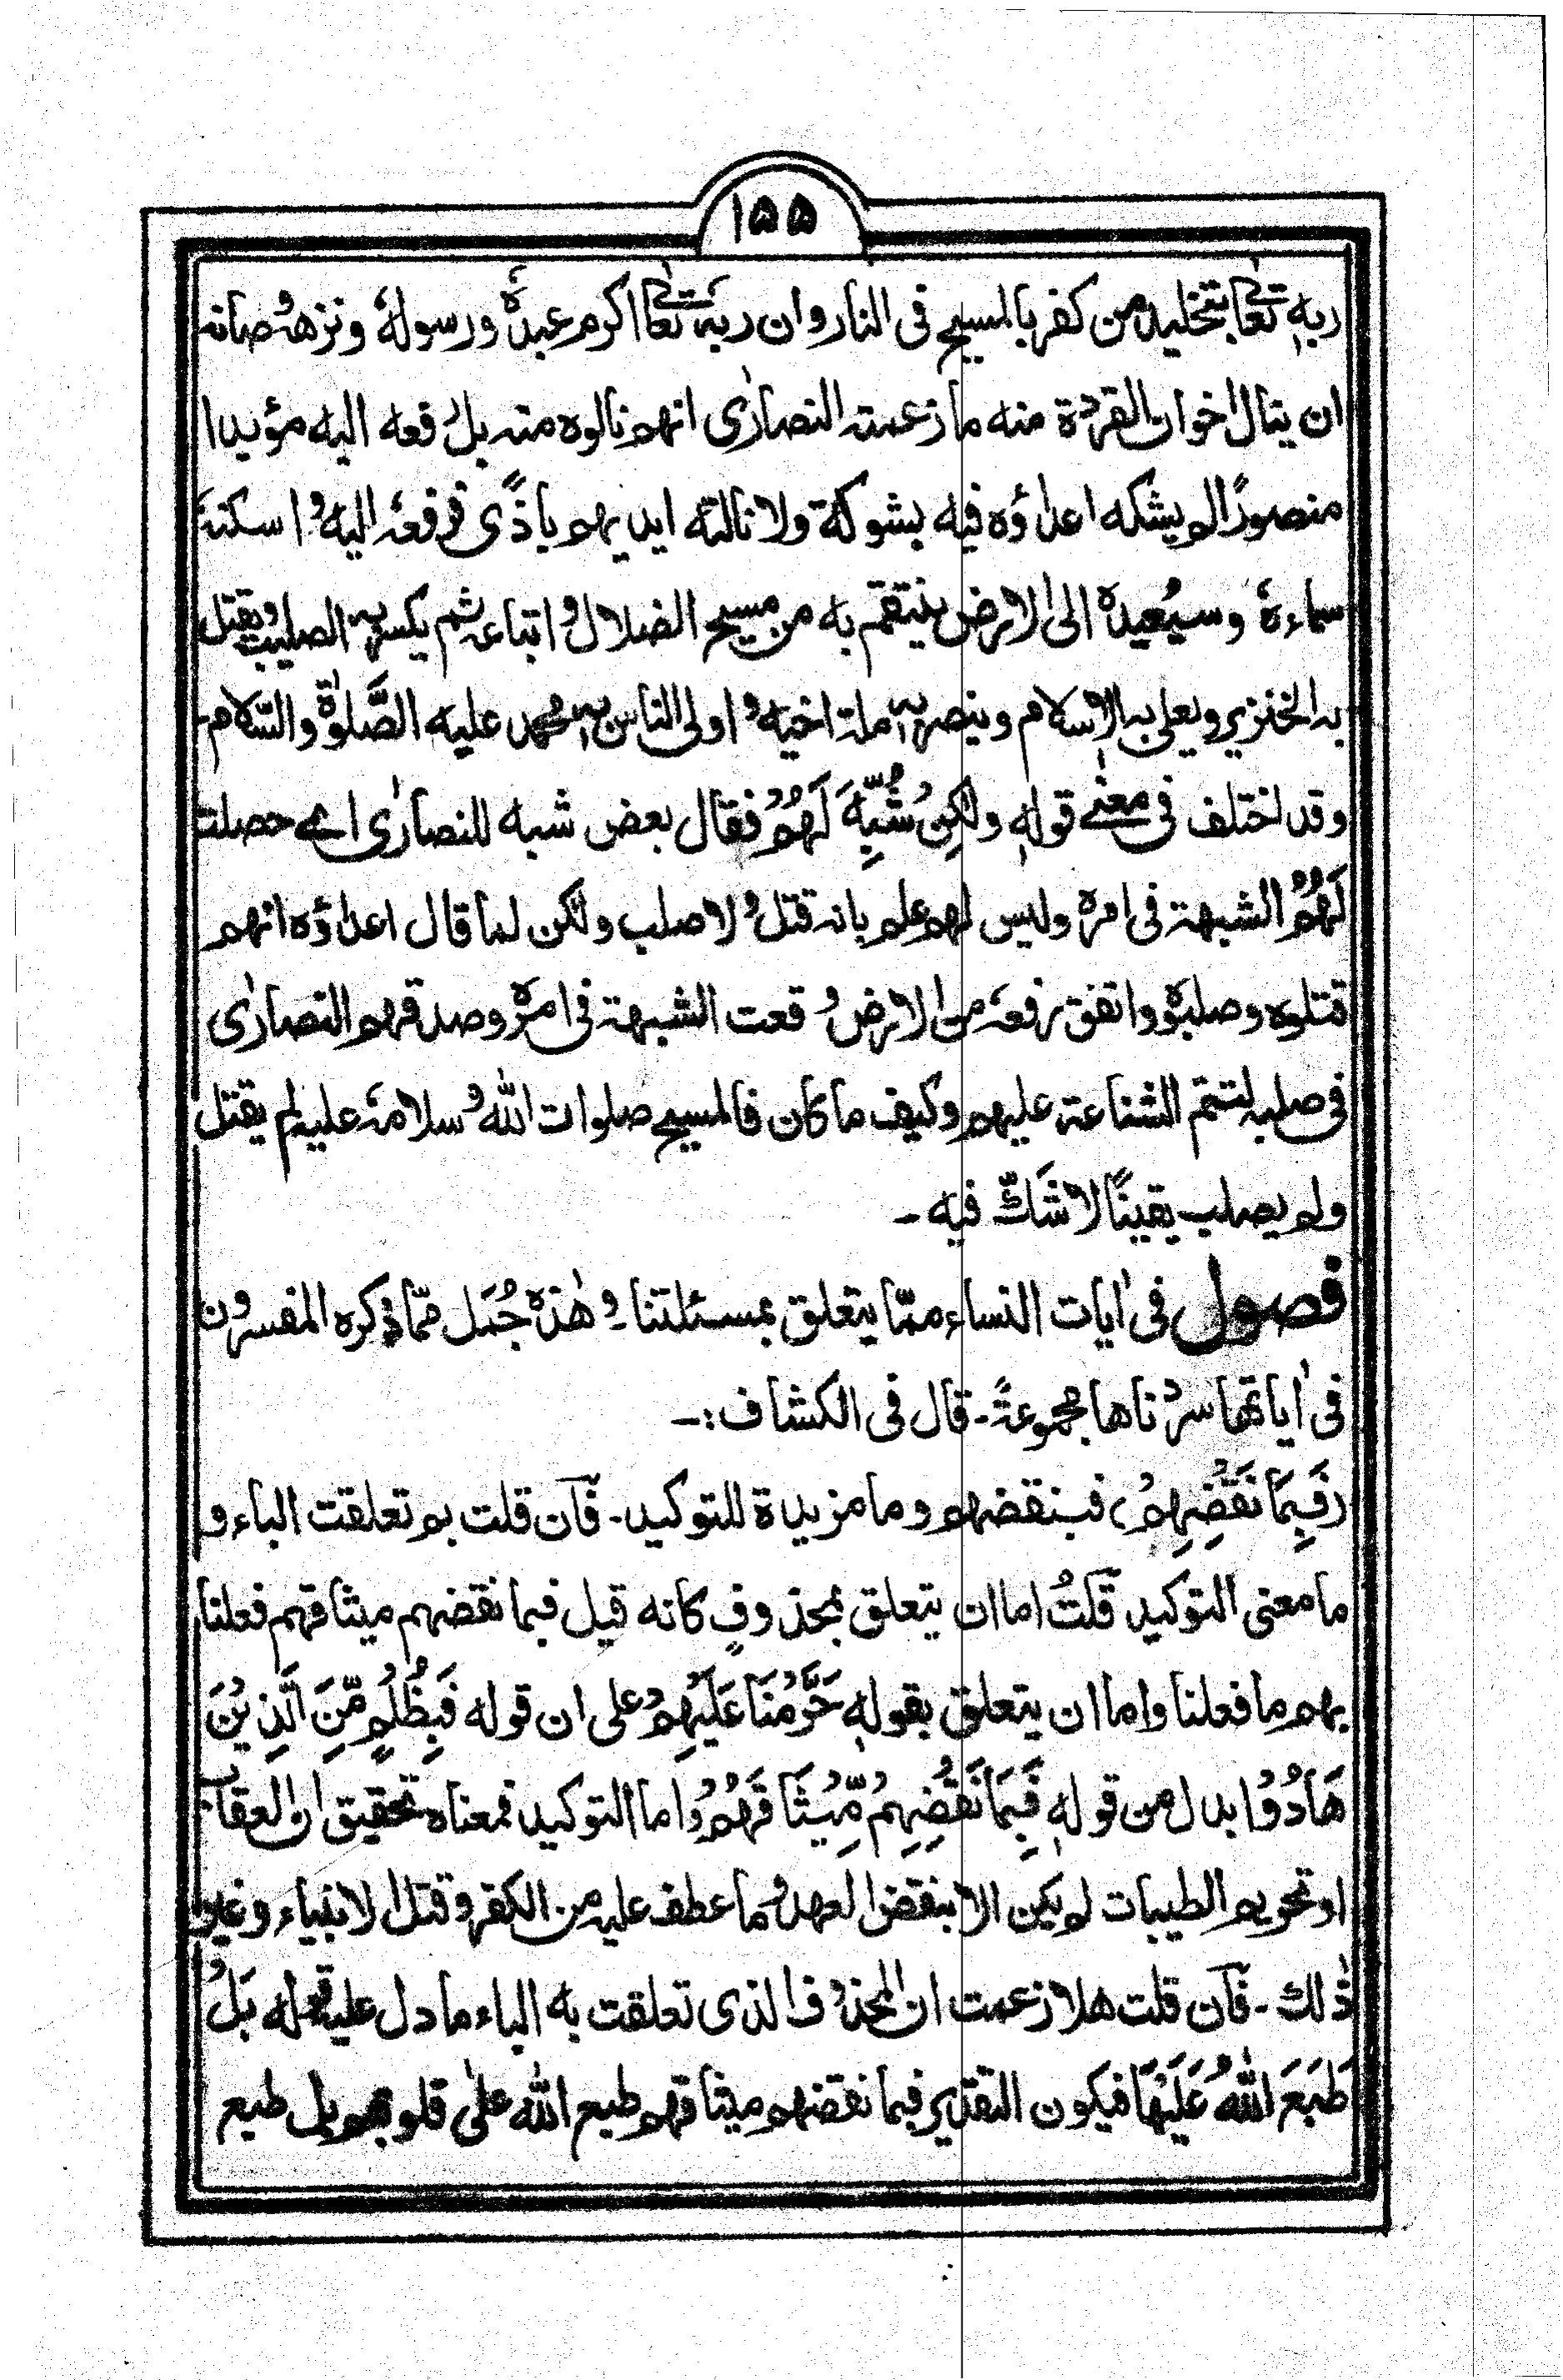 ۱۵۵
ربهٖ تعالٰی بتخليد من كفر بالمسيح فى النار وان ربهٗ تعالٰی اكرم عبدهٗ ورسولهٗ ونزهه وصانه
ان ينال اخوان القردة منه ما زعمته النصارٰى انهم نالوه منه بل رفعه اليه مؤيدا
منصورًا لم يشكه اعداؤه فيه بشوكة ولا نالته ايديهم باذًى فرفعهٗ اليه واسكنهٗ
سماءهٗ وسيُعيدهٗ الى الارض ينتقم به من مسيح الضلال واتباعه ثم يكسر به الصليب ويقتل
به الخنزير ويعلى به الاسلام وينصر به ملة اخيه واولى الناس به محمد عليه الصَّلوٰة والسّلام
وقد اختلف فى معنٰے قولهٖ ولٰكِنْ شُبِّهَ لَهُمْ فقال بعض شبه للنصارٰى اے حصلت
لَهُمُ الشبهة فى امرهٖ وليس لهم علم بانه قتل ولا صلب ولٰكن لما قال اعداؤه انهم
قتلوه وصلبوهٗ واتفق رفعهٗ من الارض وقعت الشبهة فى امرهٖ وصدقهم النصارٰى
فى صلبه لتتم الشناعة عليهم وكيف ما كان فالمسيح صلوات اللّٰه وسلامهٗ عليه لم يقتل
ولم يصلب يقينًا لا شَكّ فيه ـ
فصول فى اٰيات النساء ممّا يتعلق بمسئلتنا ـ وهٰذهٖ جُمَل ممّا ذكره المفسرون
فى اٰياتها سردناها مجموعةً ـ قال فى الكشاف :ـ
(فَبِمَا نَقْضِهِمْ) فبنقضهم وما مزيدة للتوكيد ـ فآن قلت بم تعلقت الباء و
ما معنى التوكيد قلتُ اما ان يتعلق بمحذوفٍ كانه قيل فبما نقضهم ميثاقهم فعلنا
بهم ما فعلنا واما ان يتعلق بقولهٖ حَرَّمْنَا عَلَيْهِمْ على ان قوله فَبِظُلْمٍ مِّنَ الَّذِيْنَ
هَادُوْا بدل من قولهٖ فَبِمَا نَقْضِهِمْ مِّيْثَاقَهُمْ واما التوكيد فمعناه تحقيق ان العقاب
او تحريم الطيبات لم يكن الا بنقض العهد وما عطف عليه من الكفر وقتل الانبياء وغير
ذٰلك ـ فآن قلت هلا زعمت ان المحذوف الذى تعلقت به الباء ما دل عليه قوله بَلْ
طَبَعَ اللّٰهُ عَلَيْهَا فيكون التقدير فبما نقضهم ميثاقهم طبع اللّٰه علٰى قلوبهم بل طبع